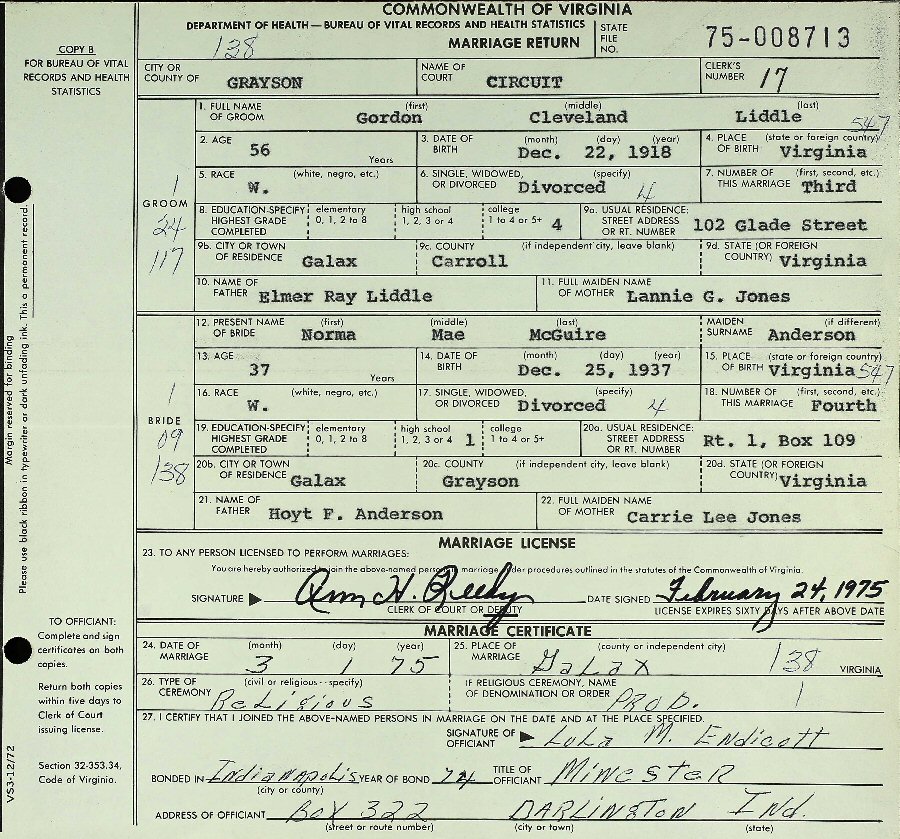 COMMONWEALTH OF VIRGINIA
DEPARTMENT OF HEALTH — BUREAU OF VITAL RECORDS AND HEALTH STATISTICS
138
MARRIAGE RETURN
STATE FILE NO. 75-008713
COPY B
FOR BUREAU OF VITAL RECORDS AND HEALTH STATISTICS
CITY OR COUNTY OF GRAYSON
NAME OF COURT CIRCUIT
CLERK'S NUMBER 17
1. FULL NAME OF GROOM (first) Gordon (middle) Cleveland (last) Liddle 547
2. AGE 56 Years
3. DATE OF BIRTH (month) (day) (year) Dec. 22, 1918
4. PLACE OF BIRTH (state or foreign country) Virginia
5. RACE (white, negro, etc.) W.
6. SINGLE, WIDOWED, OR DIVORCED (specify) Divorced 4
7. NUMBER OF THIS MARRIAGE (first, second, etc.) Third
1
GROOM
24
117
8. EDUCATION-SPECIFY HIGHEST GRADE COMPLETED elementary 0, 1, 2 to 8 high school 1, 2, 3 or 4 college 1 to 4 or 5+ 4
9a. USUAL RESIDENCE: STREET ADDRESS OR RT. NUMBER 102 Glade Street
9b. CITY OR TOWN OF RESIDENCE Galax
9c. COUNTY (if independent city, leave blank) Carroll
9d. STATE (OR FOREIGN COUNTRY) Virginia
10. NAME OF FATHER Elmer Ray Liddle
11. FULL MAIDEN NAME OF MOTHER Lannie G. Jones
12. PRESENT NAME OF BRIDE (first) Norma (middle) Mae (last) McGuire
MAIDEN SURNAME (if different) Anderson
13. AGE 37 Years
14. DATE OF BIRTH (month) (day) (year) Dec. 25, 1937
15. PLACE OF BIRTH (state or foreign country) Virginia 547
16. RACE (white, negro, etc.) W.
17. SINGLE, WIDOWED, OR DIVORCED (specify) Divorced 4
18. NUMBER OF THIS MARRIAGE (first, second, etc.) Fourth
1
BRIDE
09
138
19. EDUCATION-SPECIFY HIGHEST GRADE COMPLETED elementary 0, 1, 2 to 8 high school 1, 2, 3 or 4 1 college 1 to 4 or 5+
20a. USUAL RESIDENCE: STREET ADDRESS OR RT. NUMBER Rt. 1, Box 109
20b. CITY OR TOWN OF RESIDENCE Galax
20c. COUNTY (if independent city, leave blank) Grayson
20d. STATE (OR FOREIGN COUNTRY) Virginia
21. NAME OF FATHER Hoyt F. Anderson
22. FULL MAIDEN NAME OF MOTHER Carrie Lee Jones
Margin reserved for binding
Please use black ribbon in typewriter or dark unfading ink. This a permanent record.
MARRIAGE LICENSE
23. TO ANY PERSON LICENSED TO PERFORM MARRIAGES:
You are hereby authorized to join the above-named persons in marriage under procedures outlined in the statutes of the Commonwealth of Virginia.
SIGNATURE Ann H.
CLERK OF COURT OR DEPUTY
DATE SIGNED February 24, 1975
LICENSE EXPIRES SIXTY DAYS AFTER ABOVE DATE
MARRIAGE CERTIFICATE
TO OFFICIANT:
Complete and sign certificates on both copies.
Return both copies within five days to Clerk of Court issuing license.
Section 32-353.34, Code of Virginia.
VS3-12/72
24. DATE OF MARRIAGE (month) 3 (day) 1 (year) 75
25. PLACE OF MARRIAGE (county or independent city) Galax 138 VIRGINIA
26. TYPE OF CEREMONY (civil or religious - specify) Religious
IF RELIGIOUS CEREMONY, NAME OF DENOMINATION OR ORDER PROD. 1
27. I CERTIFY THAT I JOINED THE ABOVE-NAMED PERSONS IN MARRIAGE ON THE DATE AND AT THE PLACE SPECIFIED.
SIGNATURE OF OFFICIANT Lula M. Endicott
BONDED IN Indianapolis (city or county) YEAR OF BOND 74 TITLE OF OFFICIANT MinesteR
ADDRESS OF OFFICIANT BOX 322 (street or route number) DARLINGTON (city or town) Ind. (state)